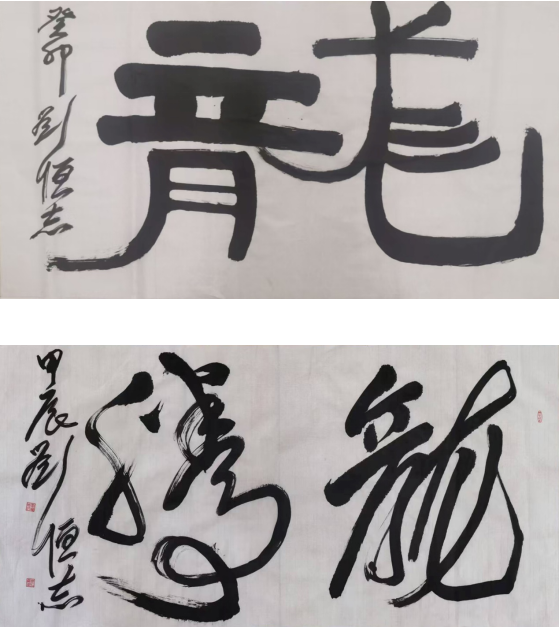 龍
癸卯 劉恒志
龍騰
甲辰 劉恒志